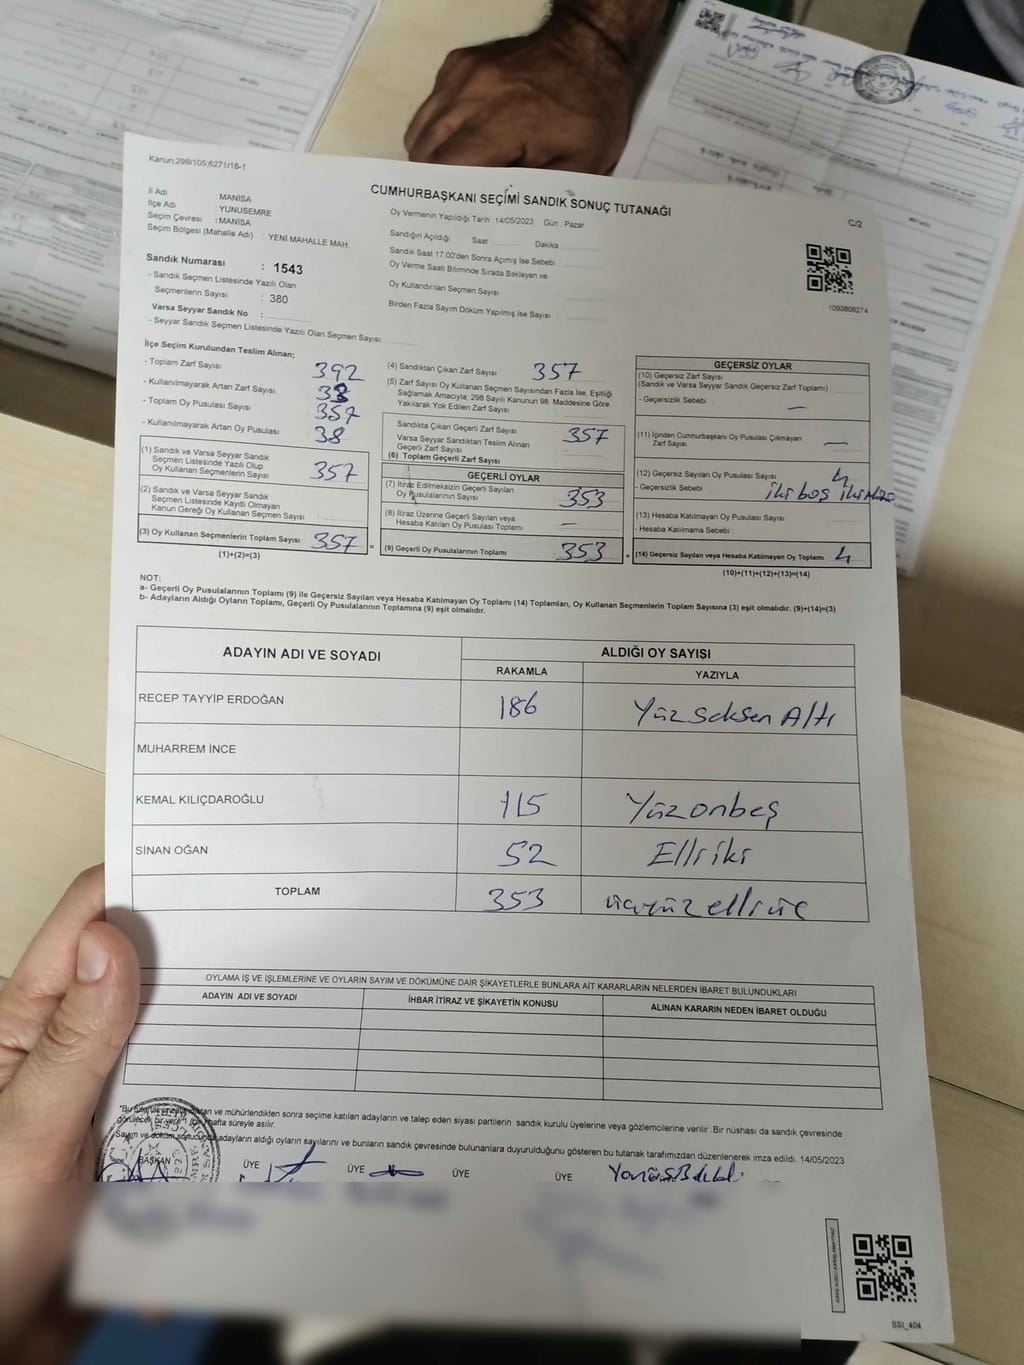 Kanun:298/105;6271/18-1
CUMHURBAŞKANI SEÇİMİ SANDIK SONUÇ TUTANAĞI
C/2
İl Adı : MANİSA
İlçe Adı : YUNUSEMRE
Seçim Çevresi : MANİSA
Seçim Bölgesi (Mahalle Adı) : YENİ MAHALLE MAH.
Oy Vermenin Yapıldığı Tarih :14/05/2023 Gün : Pazar
Sandığın Açıldığı Saat Dakika
Sandık Saat 17:00'den Sonra Açımış İse Sebebi
Oy Verme Saati Bitiminde Sırada Bekleyen ve
Oy Kullandırılan Seçmen Sayısı
Birden Fazla Sayım Döküm Yapılmış İse Sayısı
1093809274
Sandık Numarası : 1543
- Sandık Seçmen Listesinde Yazılı Olan
Seçmenlerin Sayısı : 380
Varsa Seyyar Sandık No :
- Seyyar Sandık Seçmen Listesinde Yazılı Olan Seçmen Sayısı:
İlçe Seçim Kurulundan Teslim Alınan;
- Toplam Zarf Sayısı 392
- Kullanılmayarak Artan Zarf Sayısı
- Toplam Oy Pusulası Sayısı 357
- Kullanılmayarak Artan Oy Pusulası 38
(1) Sandık ve Varsa Seyyar Sandık
Seçmen Listesinde Yazılı Olup
Oy Kullanan Seçmenlerin Sayısı 357
(2) Sandık ve Varsa Seyyar Sandık
Seçmen Listesinde Kayıtlı Olmayan
Kanun Gereği Oy Kullanan Seçmen Sayısı :
(3) Oy Kullanan Seçmenlerin Toplam Sayısı 357 =
(1)+(2)=(3)
(4) Sandıktan Çıkan Zarf Sayısı 357
(5) Zarf Sayısı Oy Kullanan Seçmen Sayısından Fazla İse, Eşitliği
Sağlamak Amacıyla; 298 Sayılı Kanunun 98. Maddesine Göre
Yakılarak Yok Edilen Zarf Sayısı
Sandıkta Çıkan Geçerli Zarf Sayısı 357
Varsa Seyyar Sandıktan Teslim Alınan
Geçerli Zarf Sayısı
(6) Toplam Geçerli Zarf Sayısı
GEÇERLİ OYLAR
(7) İtiraz Edilmeksizin Geçerli Sayılan
Oy Pusulalarının Sayısı 353
(8) İtiraz Üzerine Geçerli Sayılan veya
Hesaba Katılan Oy Pusulası Toplamı —
(9) Geçerli Oy Pusulalarının Toplamı 353 +
GEÇERSİZ OYLAR
(10) Geçersiz Zarf Sayısı
(Sandık ve Varsa Seyyar Sandık Geçersiz Zarf Toplamı)
- Geçersizlik Sebebi —
(11) İçinden Cumhurbaşkanı Oy Pusulası Çıkmayan
Zarf Sayısı —
(12) Geçersiz Sayılan Oy Pusulası Sayısı 4
- Geçersizlik Sebebi iki boş iki
(13) Hesaba Katılmayan Oy Pusulası Sayısı
- Hesaba Katılmama Sebebi :
(14) Geçersiz Sayılan veya Hesaba Katılmayan Oy Toplamı 4
(10)+(11)+(12)+(13)=(14)
NOT:
a- Geçerli Oy Pusulalarının Toplamı (9) ile Geçersiz Sayılan veya Hesaba Katılmayan Oy Toplamı (14) Toplamları, Oy Kullanan Seçmenlerin Toplam Sayısına (3) eşit olmalıdır. (9)+(14)=(3)
b- Adayların Aldığı Oyların Toplamı, Geçerli Oy Pusulalarının Toplamına (9) eşit olmalıdır.
ADAYIN ADI VE SOYADI ALDIĞI OY SAYISI
RAKAMLA YAZIYLA
RECEP TAYYİP ERDOĞAN 186 Yüz seksen Altı
MUHARREM İNCE
KEMAL KILIÇDAROĞLU 115 Yüzonbeş
SİNAN OĞAN 52 Elliiki
TOPLAM 353 üçyüzelliüç
OYLAMA İŞ VE İŞLEMLERİNE VE OYLARIN SAYIM VE DÖKÜMÜNE DAİR ŞİKAYETLERLE BUNLARA AİT KARARLARIN NELERDEN İBARET BULUNDUKLARI
ADAYIN ADI VE SOYADI İHBAR İTİRAZ VE ŞİKAYETİN KONUSU ALINAN KARARIN NEDEN İBARET OLDUĞU
ve mühürlendikten sonra seçime katılan adayların ve talep eden siyasi partilerin sandık kurulu üyelerine veya gözlemcilerine verilir .Bir nüshası da sandık çevresinde
görülecek bir yere hafta süreyle asılır.
Sayım ve döküm sonucunda adayların aldığı oyların sayılarını ve bunların sandık çevresinde bulunanlara duyurulduğunu gösteren bu tutanak tarafımızdan düzenlenerek imza edildi. 14/05/2023
BAŞKAN ÜYE ÜYE ÜYE ÜYE
SSI_404